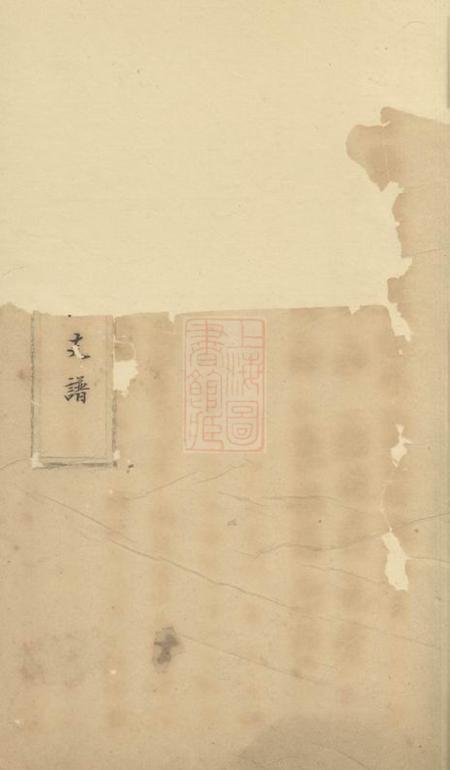 支譜
上海圖
書館藏